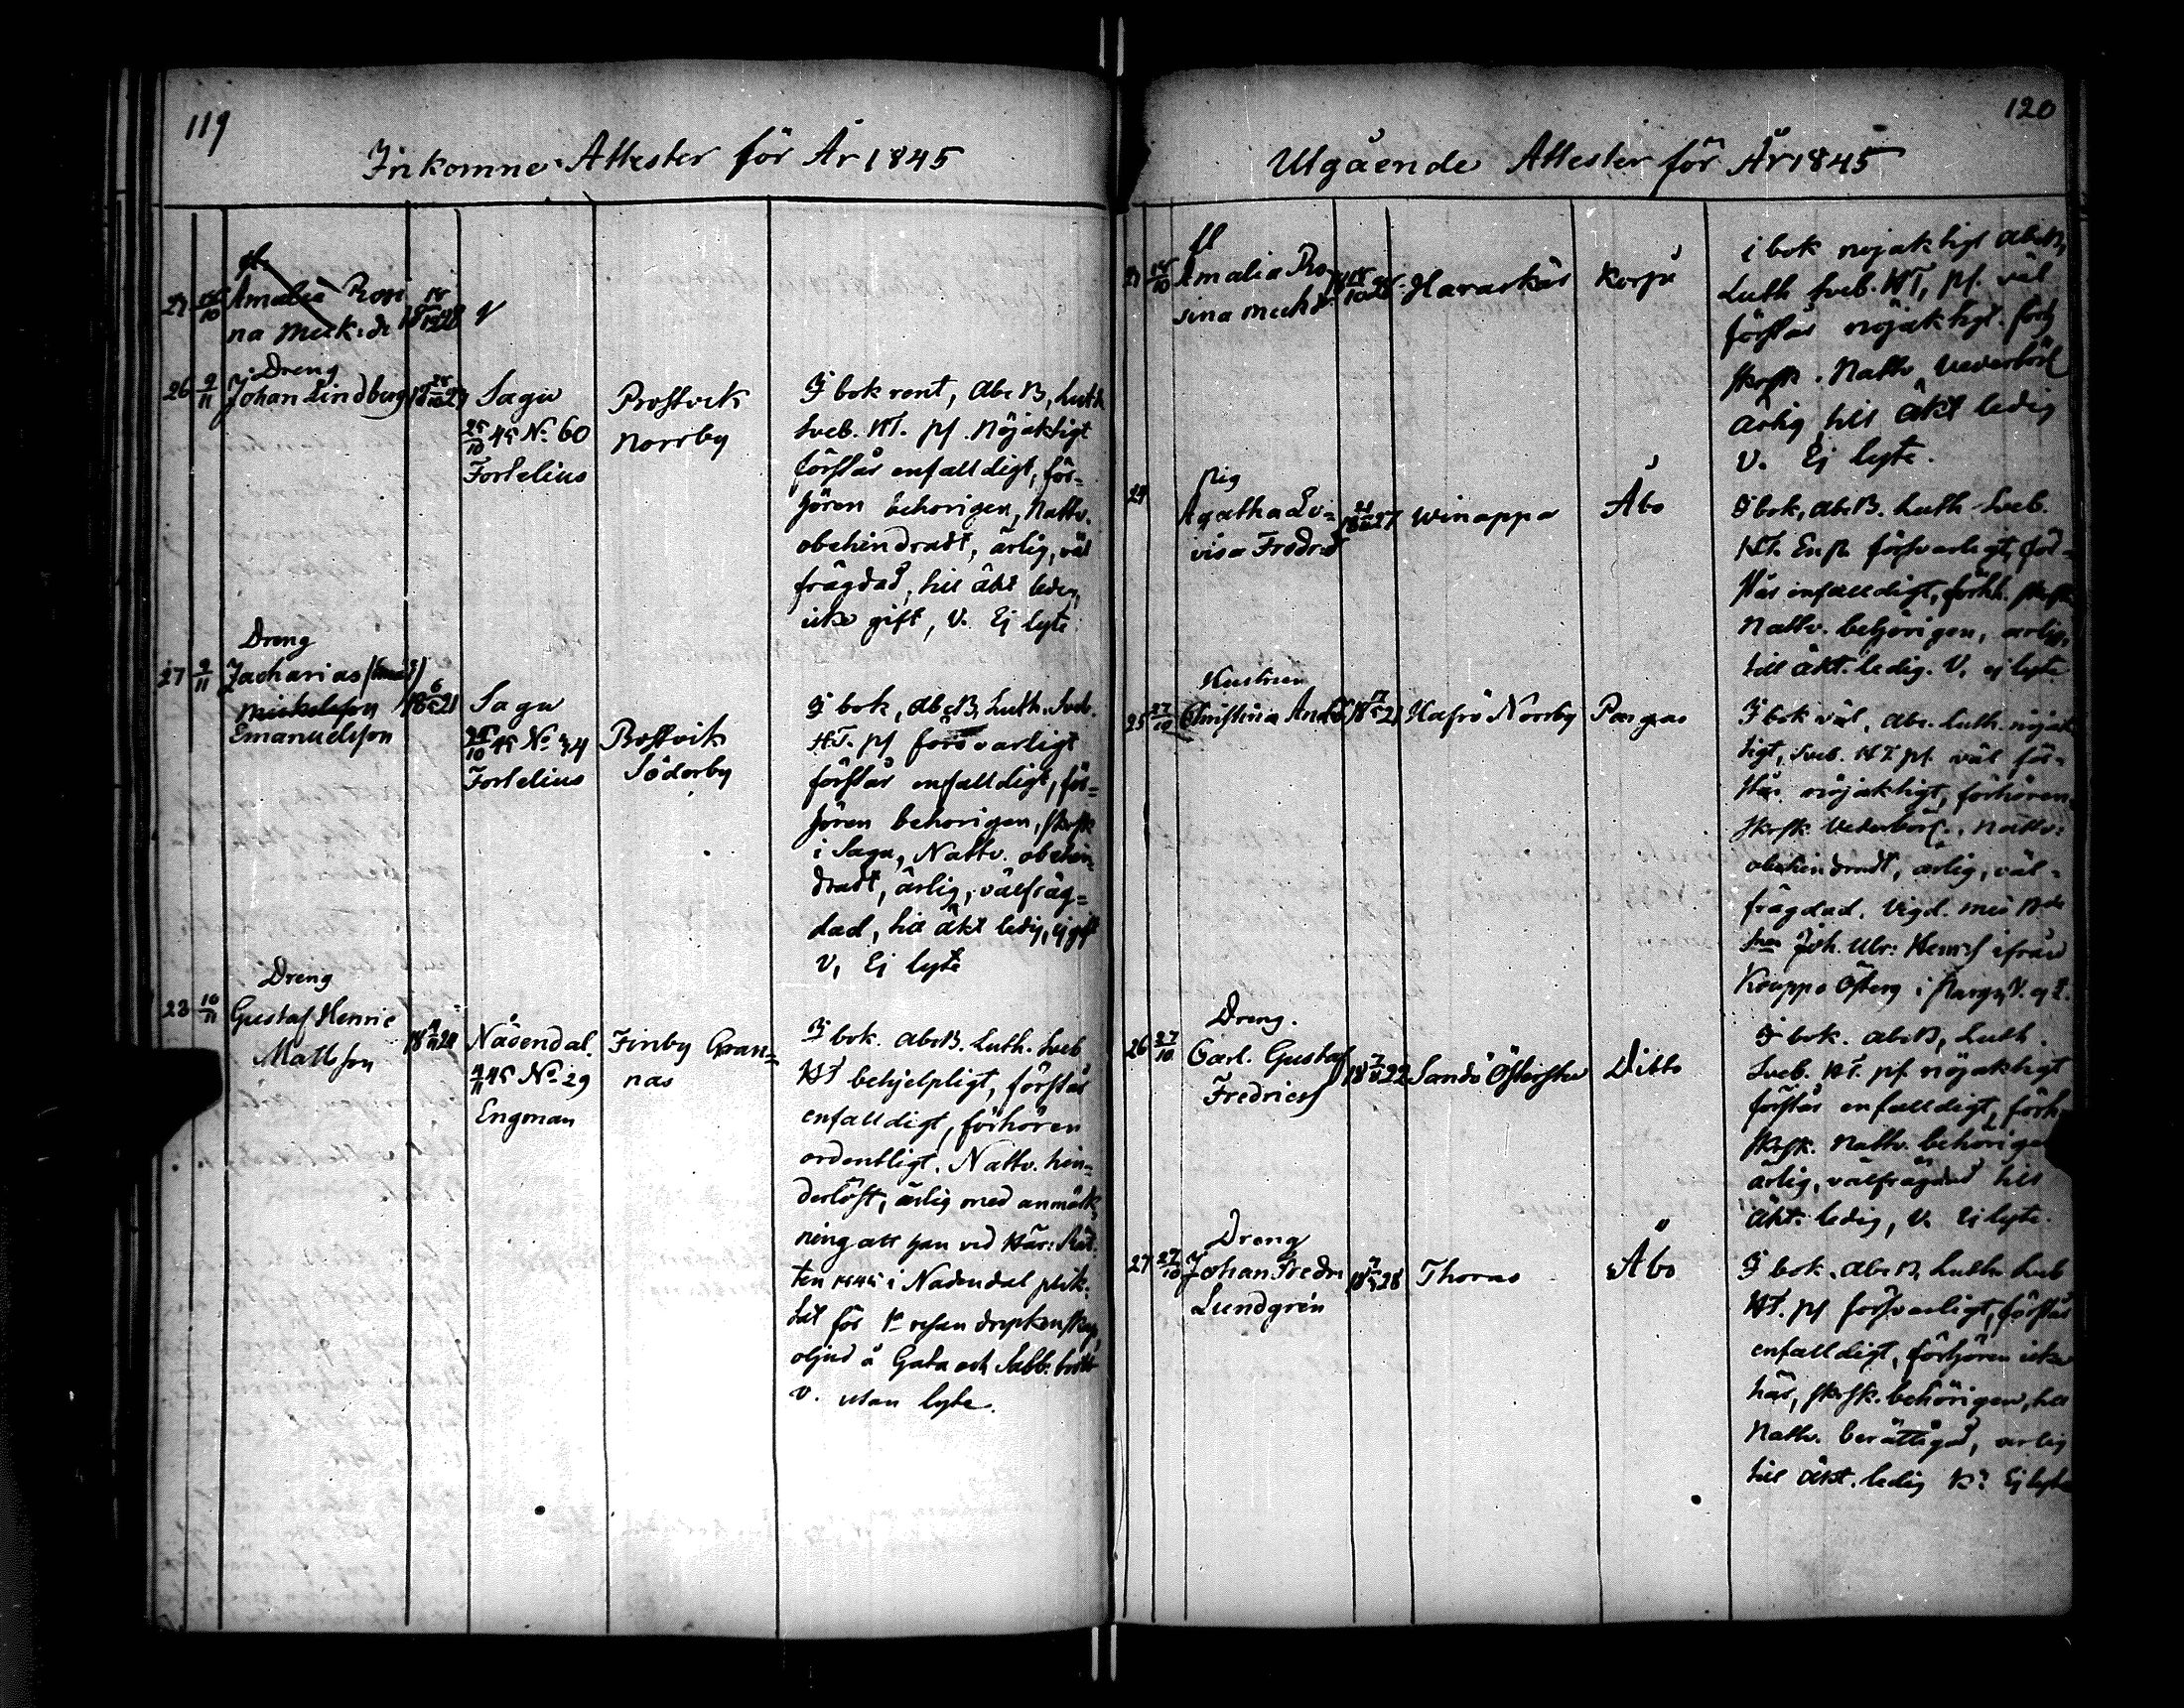 119
Inkomne Attester för År 1845
Amalia Rosi
na Mick:dr
Dreng
26 2/11 Johan Lindberg
Sagu
25/10 45 No 60
Fortelius
Prostvik
Norrby
I bok rent, Abc B, Luth
Sveb. HT. pf. Nöjaktigt
förstår enfalldigt, för=
hören behörigen, Nattv.
obehindradt, ärlig, väl
frägdad, till äkt ledig,
icke gift, V. Ej lyte
Dreng
27 2/11 Zacharias
Mickelsson
Emanuelsson
18 21
Sagu
25/10 45 No 34
Fortelius
Prostvik
Söderby
I bok, Abc B, Luth. Sveb.
HT. pf försvarligt
förstår enfalldigt, för=
hören behörigen, skrsk
i Sagu, Nattv. obehin
dradt, ärlig, välfräg=
dad, till äkt ledig, ej gift
V, Ej lyte
Dreng
28 10/11 Gustaf Henric
Mattsson
Nådendal
45 No 29
Engman
Finby Gran=
nas
I bok. Abc B. Luth. Sveb
HT behjelpligt, förstår
enfalldigt, förhören
ordentligt. Nattv. hin=
derlöst, ärlig med anmärk
ning att han vid Här: Rät
ten 1845 i Nådendal plik
tat för 1a resan dryckenskap
oljud å Gata och Sabb: brott
V. utan lyte.
120
Utgående Attester för År 1845
Amalia Ro
sina Mickdr
Haraskär
Korpo
i bok nöjaktigt Abc B,
Luth Sveb. HT, pf. väl
förstår nöjaktigt. förh
skrsk. Nattv. vederbörl
ärlig till äkt ledig
V. Ej lyte.
24
Pig
Agatha Lo=
visa Fredrsdr
Winappa
Åbo
I bok, Abc B. Luth Sveb.
HT. försvarligt, för=
står enfalldigt, förhh. skrsk
Nattv. behörigen, ärlig,
till äkt. ledig. V, ej lyte
Hustrun
25 27/10 Christina And
Hafrö Norrby
Pargas
I bok väl, Abc. Luth. nöjak
tigt, Sveb. HT pf. väl för=
står nöjaktigt, förhören
skrsk vederbörl., Nattv:
obehindradt, ärlig, väl=
frägdad. Vigd. med Bde
Son Joh. Ulr: Henrs ifrån
Kouppo Österg i Parg, V. ej L.
Dreng.
26 27/10 Carl. Gustaf
Fredricss
18 22
Sandö
Ditto
I bok. Abc B, Luth.
Sveb. HT. pf. nöjaktigt
förstår enfalldigt, förh
skrsk. Nattv. behörigen
ärlig, välfrägdad till
äkt. ledig, V. Ej lyte.
Dreng
27 27/10 Johan Fredr
Lundgrén
18 28
Thoras
Åbo
I bok. Abc B, Luth. Sveb
HT. pf försvarligt, förstår
enfalldigt, förhören icke
här, skrsk. behörigen, till
Nattv. berättigad, ärlig
till äkt. ledig Ej lyte